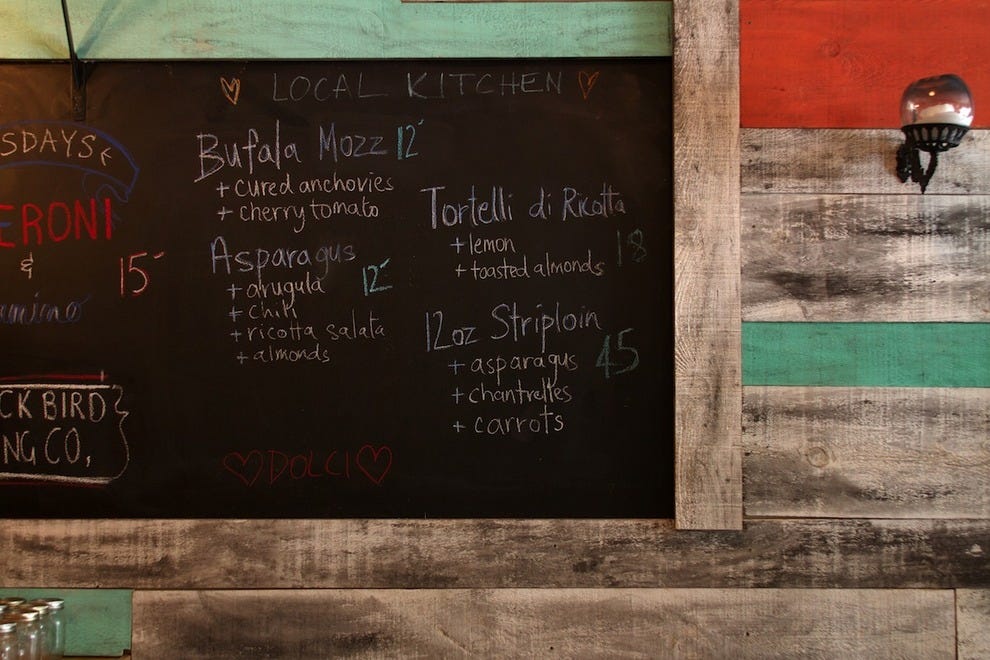 SDAYS
ERONI
&
15
CK BIRD
NG CO,
LOCAL KITCHEN
Bufala Mozz 12
+ cured anchovies
+ cherry tomato
Asparagus 12
+ arugula
+ chili
+ ricotta salata
+ almonds
Tortelli di Ricotta
+ lemon 18
+ toasted almonds
12oz Striploin
+ asparagus 45
+ chantrelles
+ carrots
DOLCI